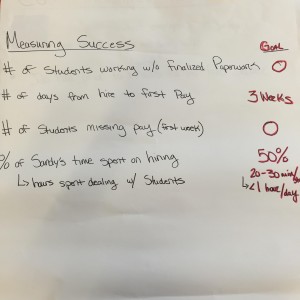 Measuring Success Goal
# of Students working w/o Finalized Paperwork 0
# of days from hire to first Pay 3 Weeks
# of Students missing pay (first week) 0
% of Sandy's time spent on hiring 50%
↳ hours spent dealing w/ Students 20-30 min/
↳ <1 hour/day